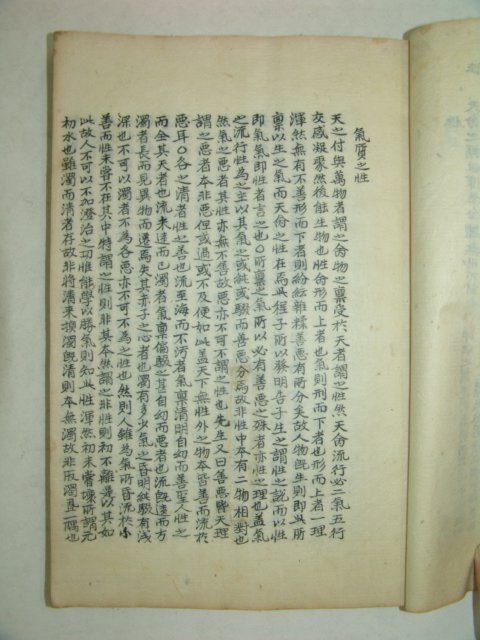 氣質之性
天之付與萬物者謂之命物之稟受於天者謂之性然天命流行必二氣五行
交感凝聚然後能生物也性命形而上者也氣則形而下者也形而上者一理
渾然無有不善形而下者則紛紜雜糅善惡有所分矣故人物旣生則即此所
稟以生之氣而天命之性在焉此程子所以發明告子生之謂性之說而以性
即氣氣即性者言之也○所稟之氣所以必有善惡之殊者亦性之理也盖氣
之流行性為之主以其氣之或純或駁而善惡分焉故非性中本有二物相對也
然氣之惡者其性亦無不善故惡亦不可不謂之性也先生又曰善惡皆天理
謂之惡者本非惡但或過或不及便如此盖天下無性外之物本皆善而流於
惡耳○各之清者性之善也流至海而不污者氣稟清明自幼而善聖人性之
而全其天者也流未遠而已濁者氣稟偏駁之甚自幼而惡者也流旣遠而方
濁者長而見異物而遷焉失其赤子之心者也濁有多少氣之昏明純駁有淺
深也不可以濁者不為各惡亦不可不為之性也然則人雖為氣所昏流於小
善而性未嘗不在其中特謂之性則非其本然謂之非性則初不離是以其如
此故人不可以不加澄治之功惟能學以勝氣則知此性渾然初未嘗壞所謂元
初水也雖濁而清者存故非將清來換濁旣清則本無濁故非取濁置一隅也